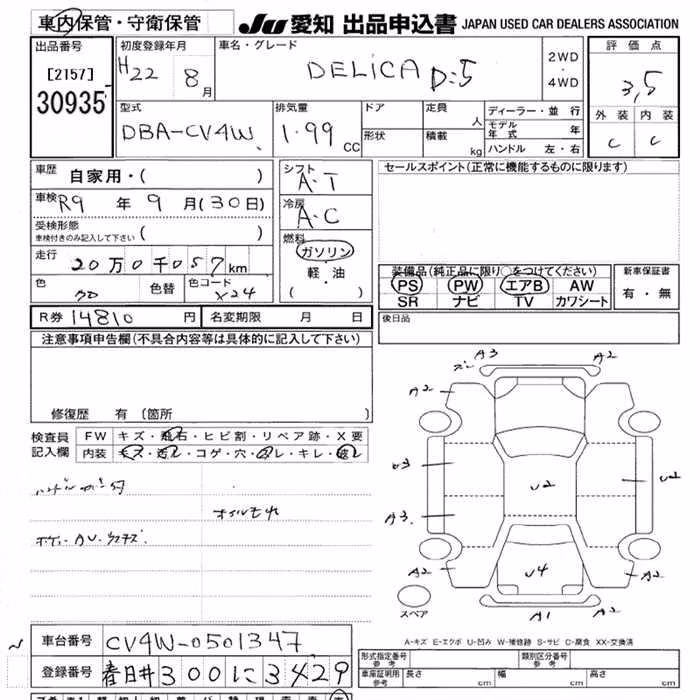 車内保管・守衛保管
JU 愛知 出品申込書 JAPAN USED CAR DEALERS ASSOCIATION
出品番号
[2157]
30935
初度登録年月
H22 8月
車名・グレード
DELICA D:5
2WD
・
4WD
評価点
3,5
外装 内装
C C
型式
DBA-CV4W
排気量
1.99 CC
ドア
形状
定員 人
積載 kg
ディーラー・並行
モデル年式 年
ハンドル 左・右
車歴 自家用・( )
車検 R9年9月(30日)
受検形態
車検付きのみ記入して下さい ( )
走行 20万0千057km
色 色替 色コード X24
シフト
A・T
冷房
A・C
燃料
ガソリン
軽・油
( )
セールスポイント(正常に機能するものに限ります)
装備品(純正品に限り○をつけてください)
PS PW エアB AW
SR ナビ TV カワシート
新車保証書
有・無
R券 14810円 名変期限 月 日
後日品
注意事項申告欄(不具合内容等は具体的に記入して下さい)
修復歴 有 (箇所 )
検査員
記入欄
FW キズ・飛石・ヒビ割・リペア跡・X要
内装 キズ・汚レ・コゲ・穴・スレ・キレ・破レ
オイルモれ
A3 A2
A2 A2
U2 U2
A3
A2 U4 A2
A1 A2
スペア
A-キズ E-エクボ U-凹み W-補修跡 S-サビ C-腐食 XX-交換済
車台番号 CV4W-0501347
登録番号 春日井300に3429
形式指定番号 参考
類別区分番号 参考
車庫証明用 参考 長さ cm 幅 cm 高さ cm